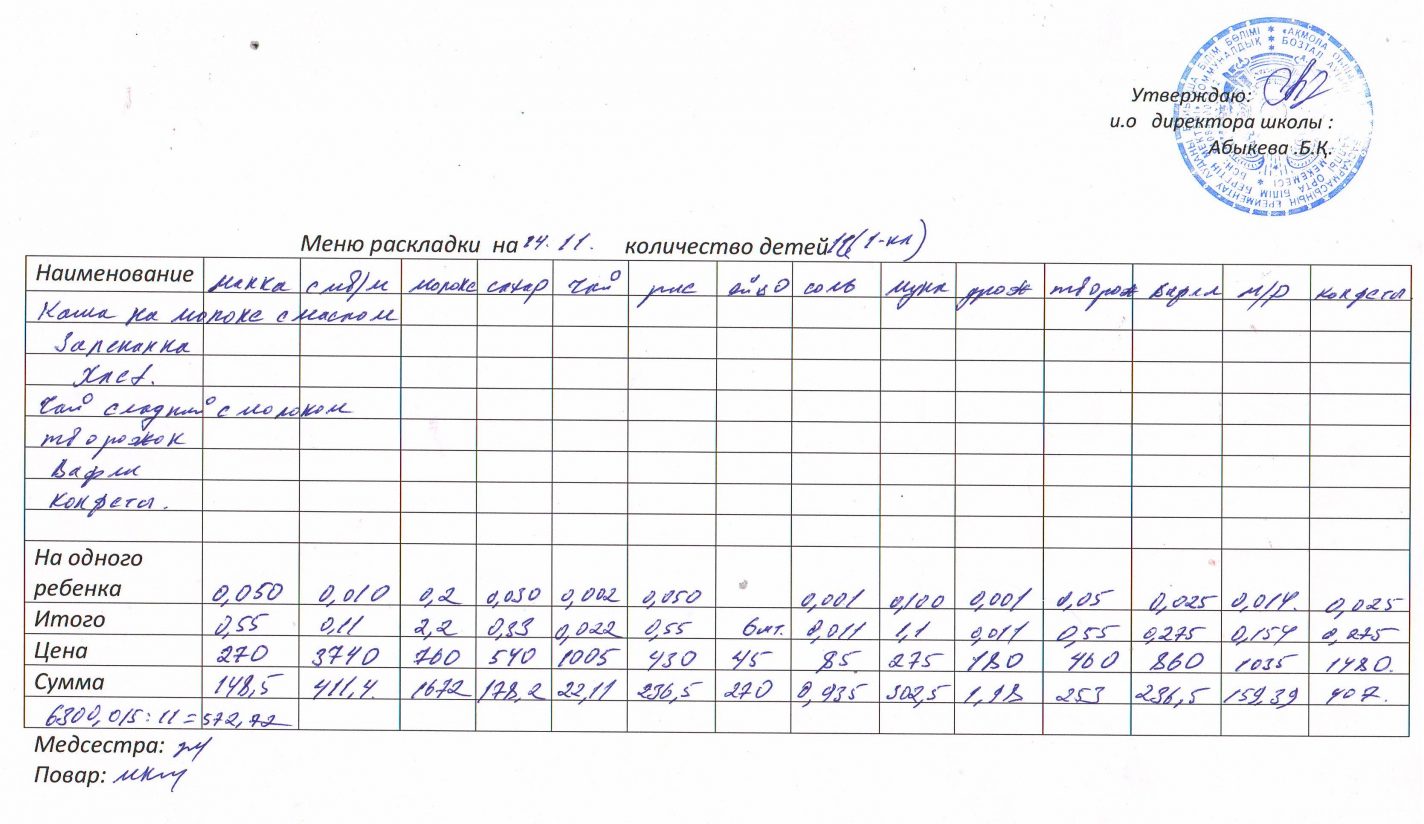 Утверждаю:
и.о директора школы :
Абыкева .Б.Қ.
Меню раскладки на 24.11. количество детей 11 (1-кл)
Наименование манка с мб/м молоко сахар чай рис яйцо соль мука дрож творож вафли м/р конфеты
Каша на молоке с маслом
Запеканка
Хлеб.
Чай сладкий с молоком
творожок
Вафли
Конфеты.
На одного
ребенка 0,050 0,010 0,2 0,030 0,002 0,050 0,001 0,100 0,001 0,05 0,025 0,014. 0,025
Итого 0,55 0,11 2,2 0,33 0,022 0,55 6шт. 0,011 1,1 0,011 0,55 0,275 0,154 0,275
Цена 270 3740 760 540 1005 430 45 85. 275 180 460 860 1035 1480.
Сумма 148,5 411,4. 1672 178,2 22,11 236,5 270 0,935 302,5 1,98 253 236,5 159,39 407.
6300,015 : 11 = 572,72
Медсестра:
Повар: